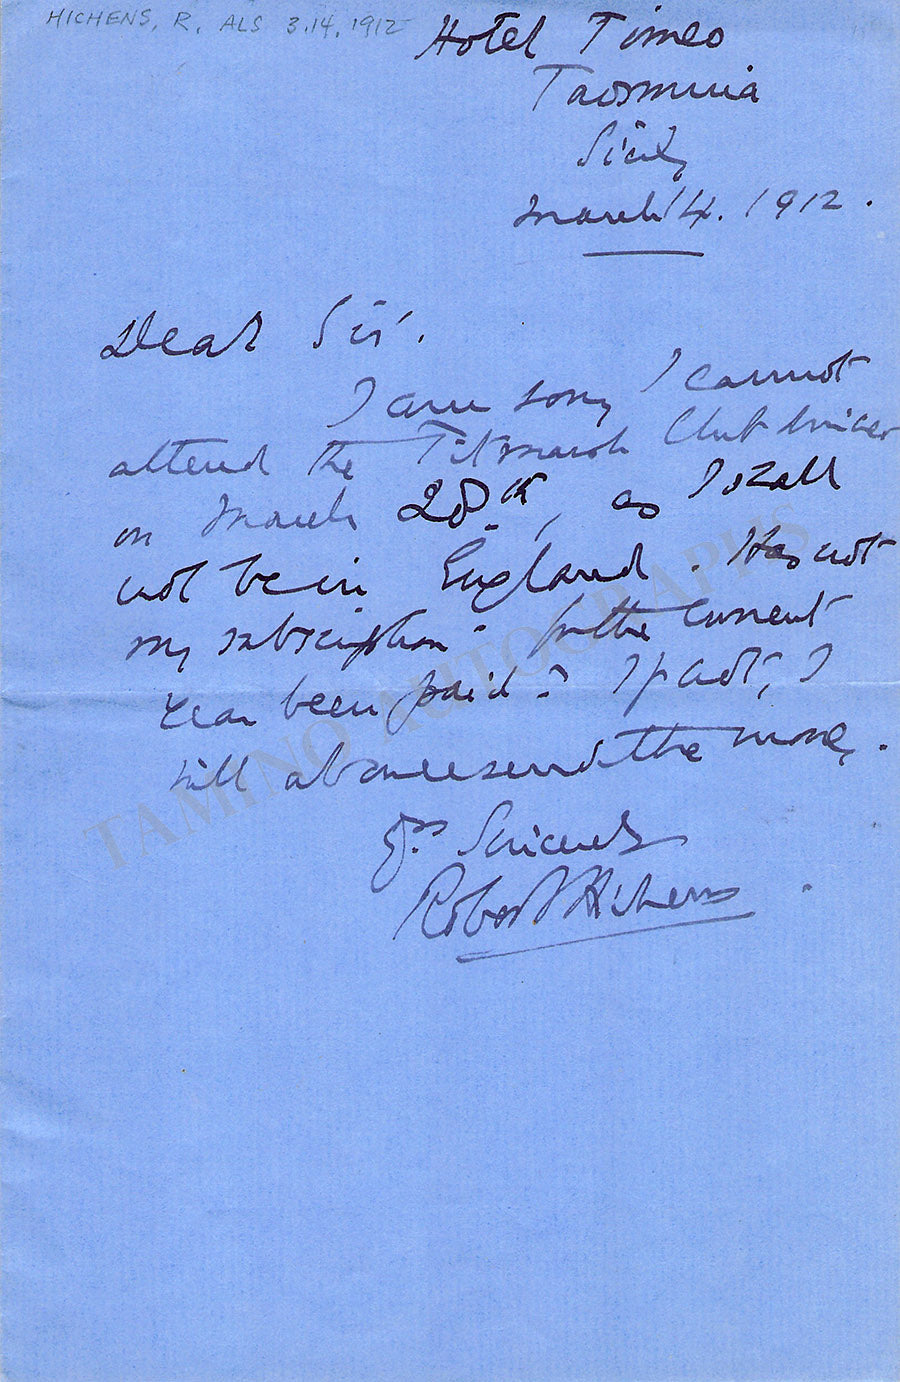 HICHENS, R. ALS 3.14.1912
Hotel Timeo
Taormina
Sicily
March 14. 1912.
Dear Sir.
I am sorry I cannot
attend the Titmarsh Club dinner
on March 28th, as I shall
not be in England. Has not
my subscription for the current
year been paid? If not, I
will at once send the money.
Yrs Sincerely
Robert Hichens
TAMINO AUTOGRAPHS